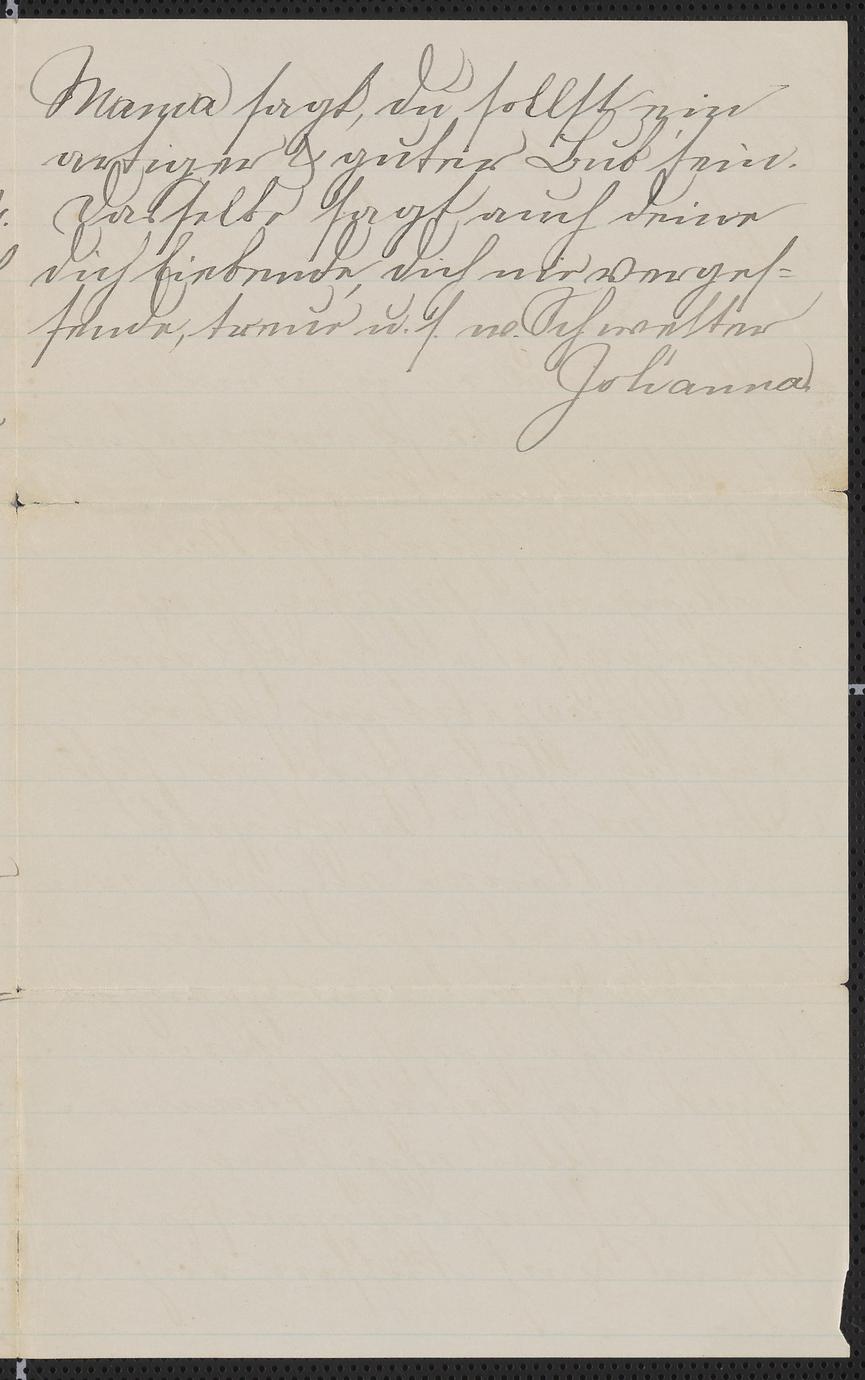 Mama sagt, du sollst ein
artiger & guter Bub sein.
Dasselbe sagt auch deine
dich liebende, dich nie verges=
sende, treue u. s. w. Schwester
Johanna.